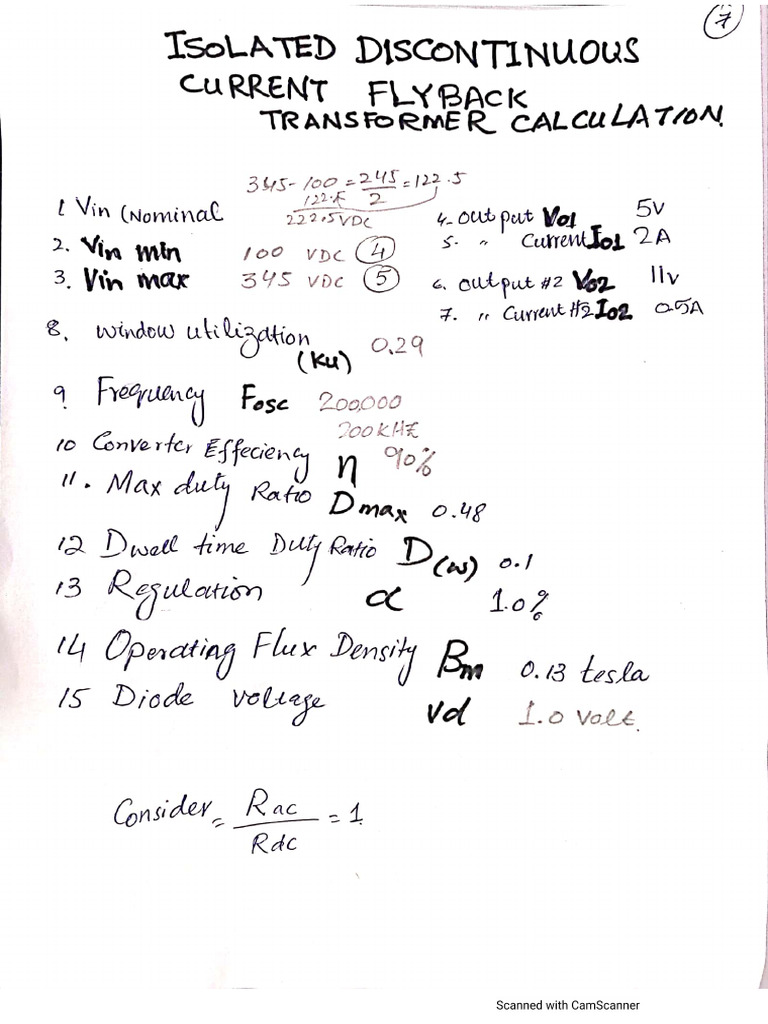 7
ISOLATED DISCONTINUOUS
CURRENT FLYBACK
TRANSFORMER CALCULATION.
345-100 = 245/2 = 122.5
122.5
1. Vin (Nominal 222.5VDC
2. Vin min 100 VDC 4
3. Vin max 345 VDC 5
4. Output Vo1 5v
5. " Current Io1 2A
6. Output #2 Vo2 11v
7. " Current #2 Io2 0.5A
8. Window utilization
(Ku) 0.29
9. Frequency Fosc 200,000
200KHZ
10 Converter Effeciency η 90%
11. Max duty Ratio Dmax 0.48
12 Dwell time Duty Ratio D(w) 0.1
13 Regulation α 1.0%
14 Operating Flux Density Bm 0.13 tesla
15 Diode voltage Vd 1.0 Volt.
Consider = Rac/Rdc = 1
Scanned with CamScanner